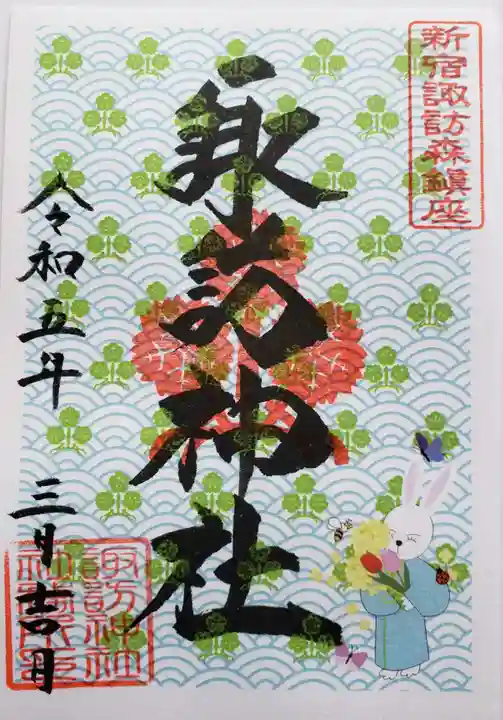 新宿諏訪森鎮座
諏訪神社
令和五年
三月吉日
諏訪神社